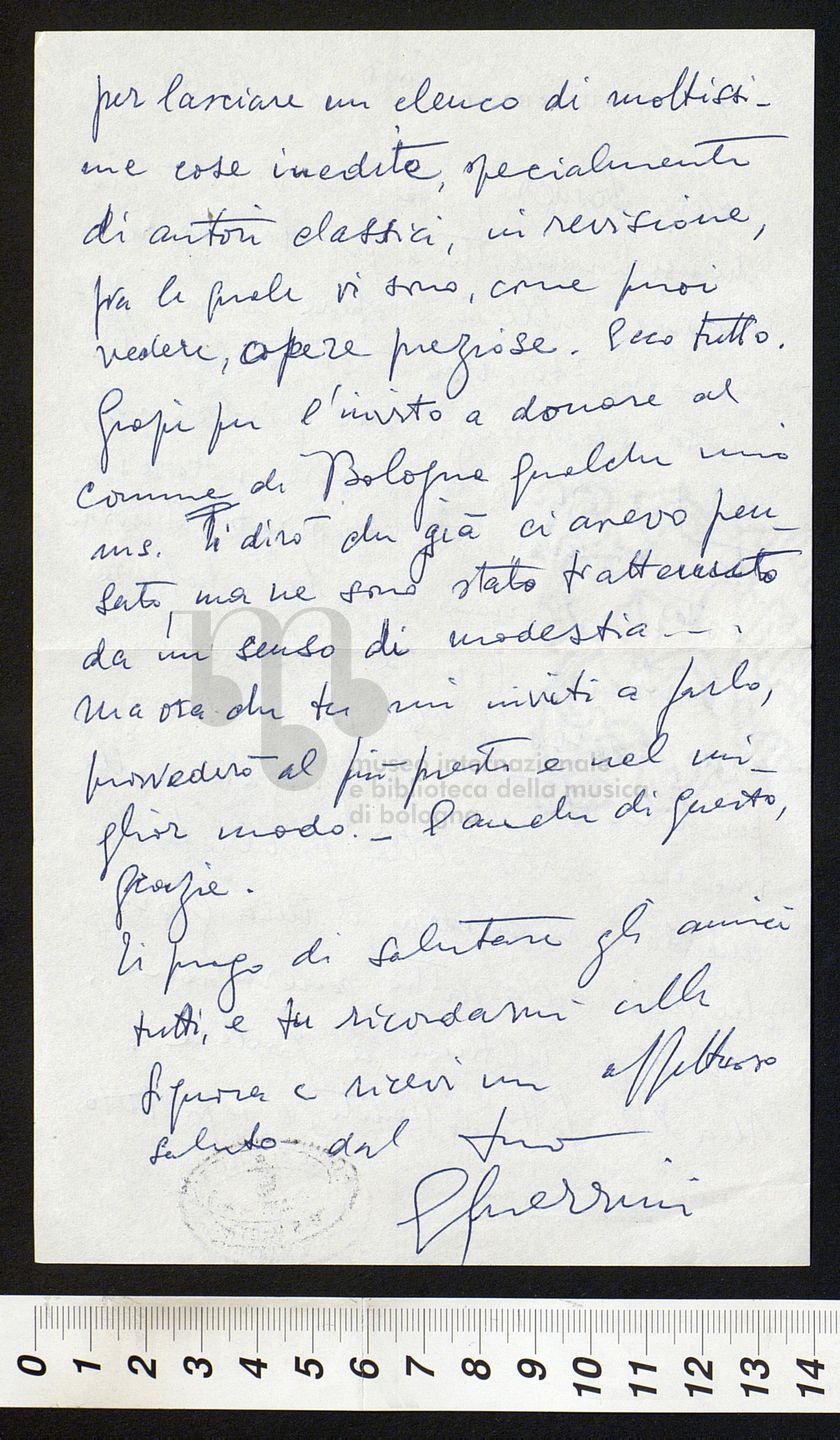 per lasciare un elenco di moltissi-
me cose inedite, specialmente
di autori classici, in revisione,
fra le quale vi sono, come puoi
vedere, opere preziose. Ecco tutto.
Grazie per l'invito a donare al
comune di Bologna qualche mio
ms. Ti dirò che già ci avevo pen-
sato, ma ne sono stato trattenuto
da un senso di modestia - - .
Ma ora che tu mi inviti a farlo,
provvederò al più presto e nel mi-
glior modo. - E anche di questo,
grazie.
Ti prego di salutare gli amici
tutti, e tu ricordami alla
Signora e ricevi un affettuoso
saluto dal tuo
GGuerrini
museo internazionale
e biblioteca della musica
di bologna
0 1 2 3 4 5 6 7 8 9 10 11 12 13 14